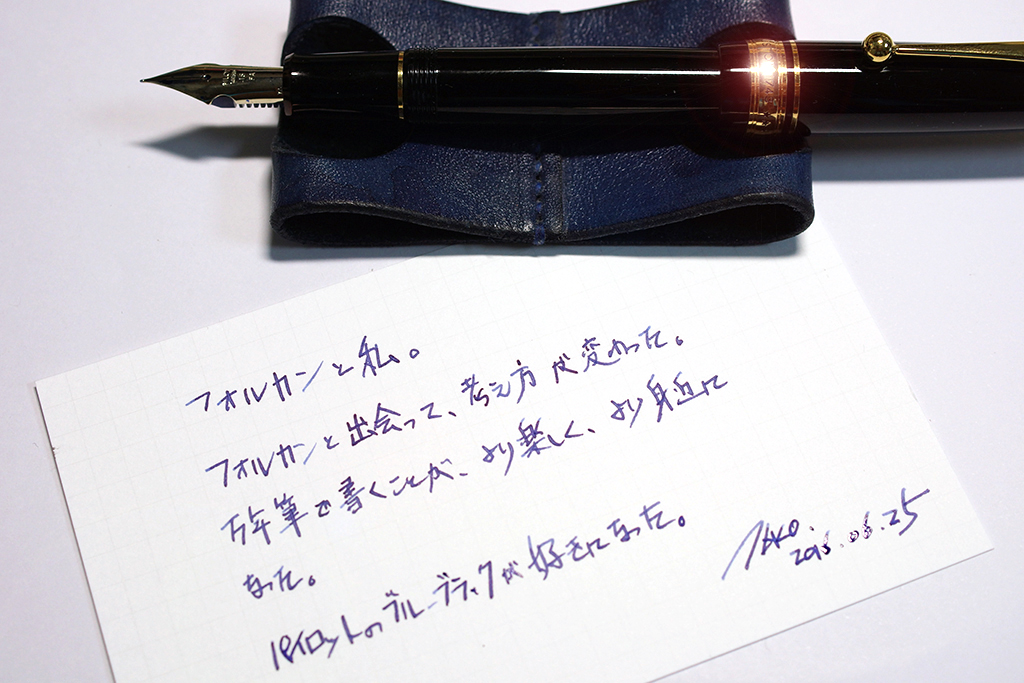 フォルカンと私。
フォルカンと出会って、考え方が変わった。
万年筆で書くことが、より楽しく、より身近に
なった。
パイロットのブルーブラックが好きになった。
2016.06.25